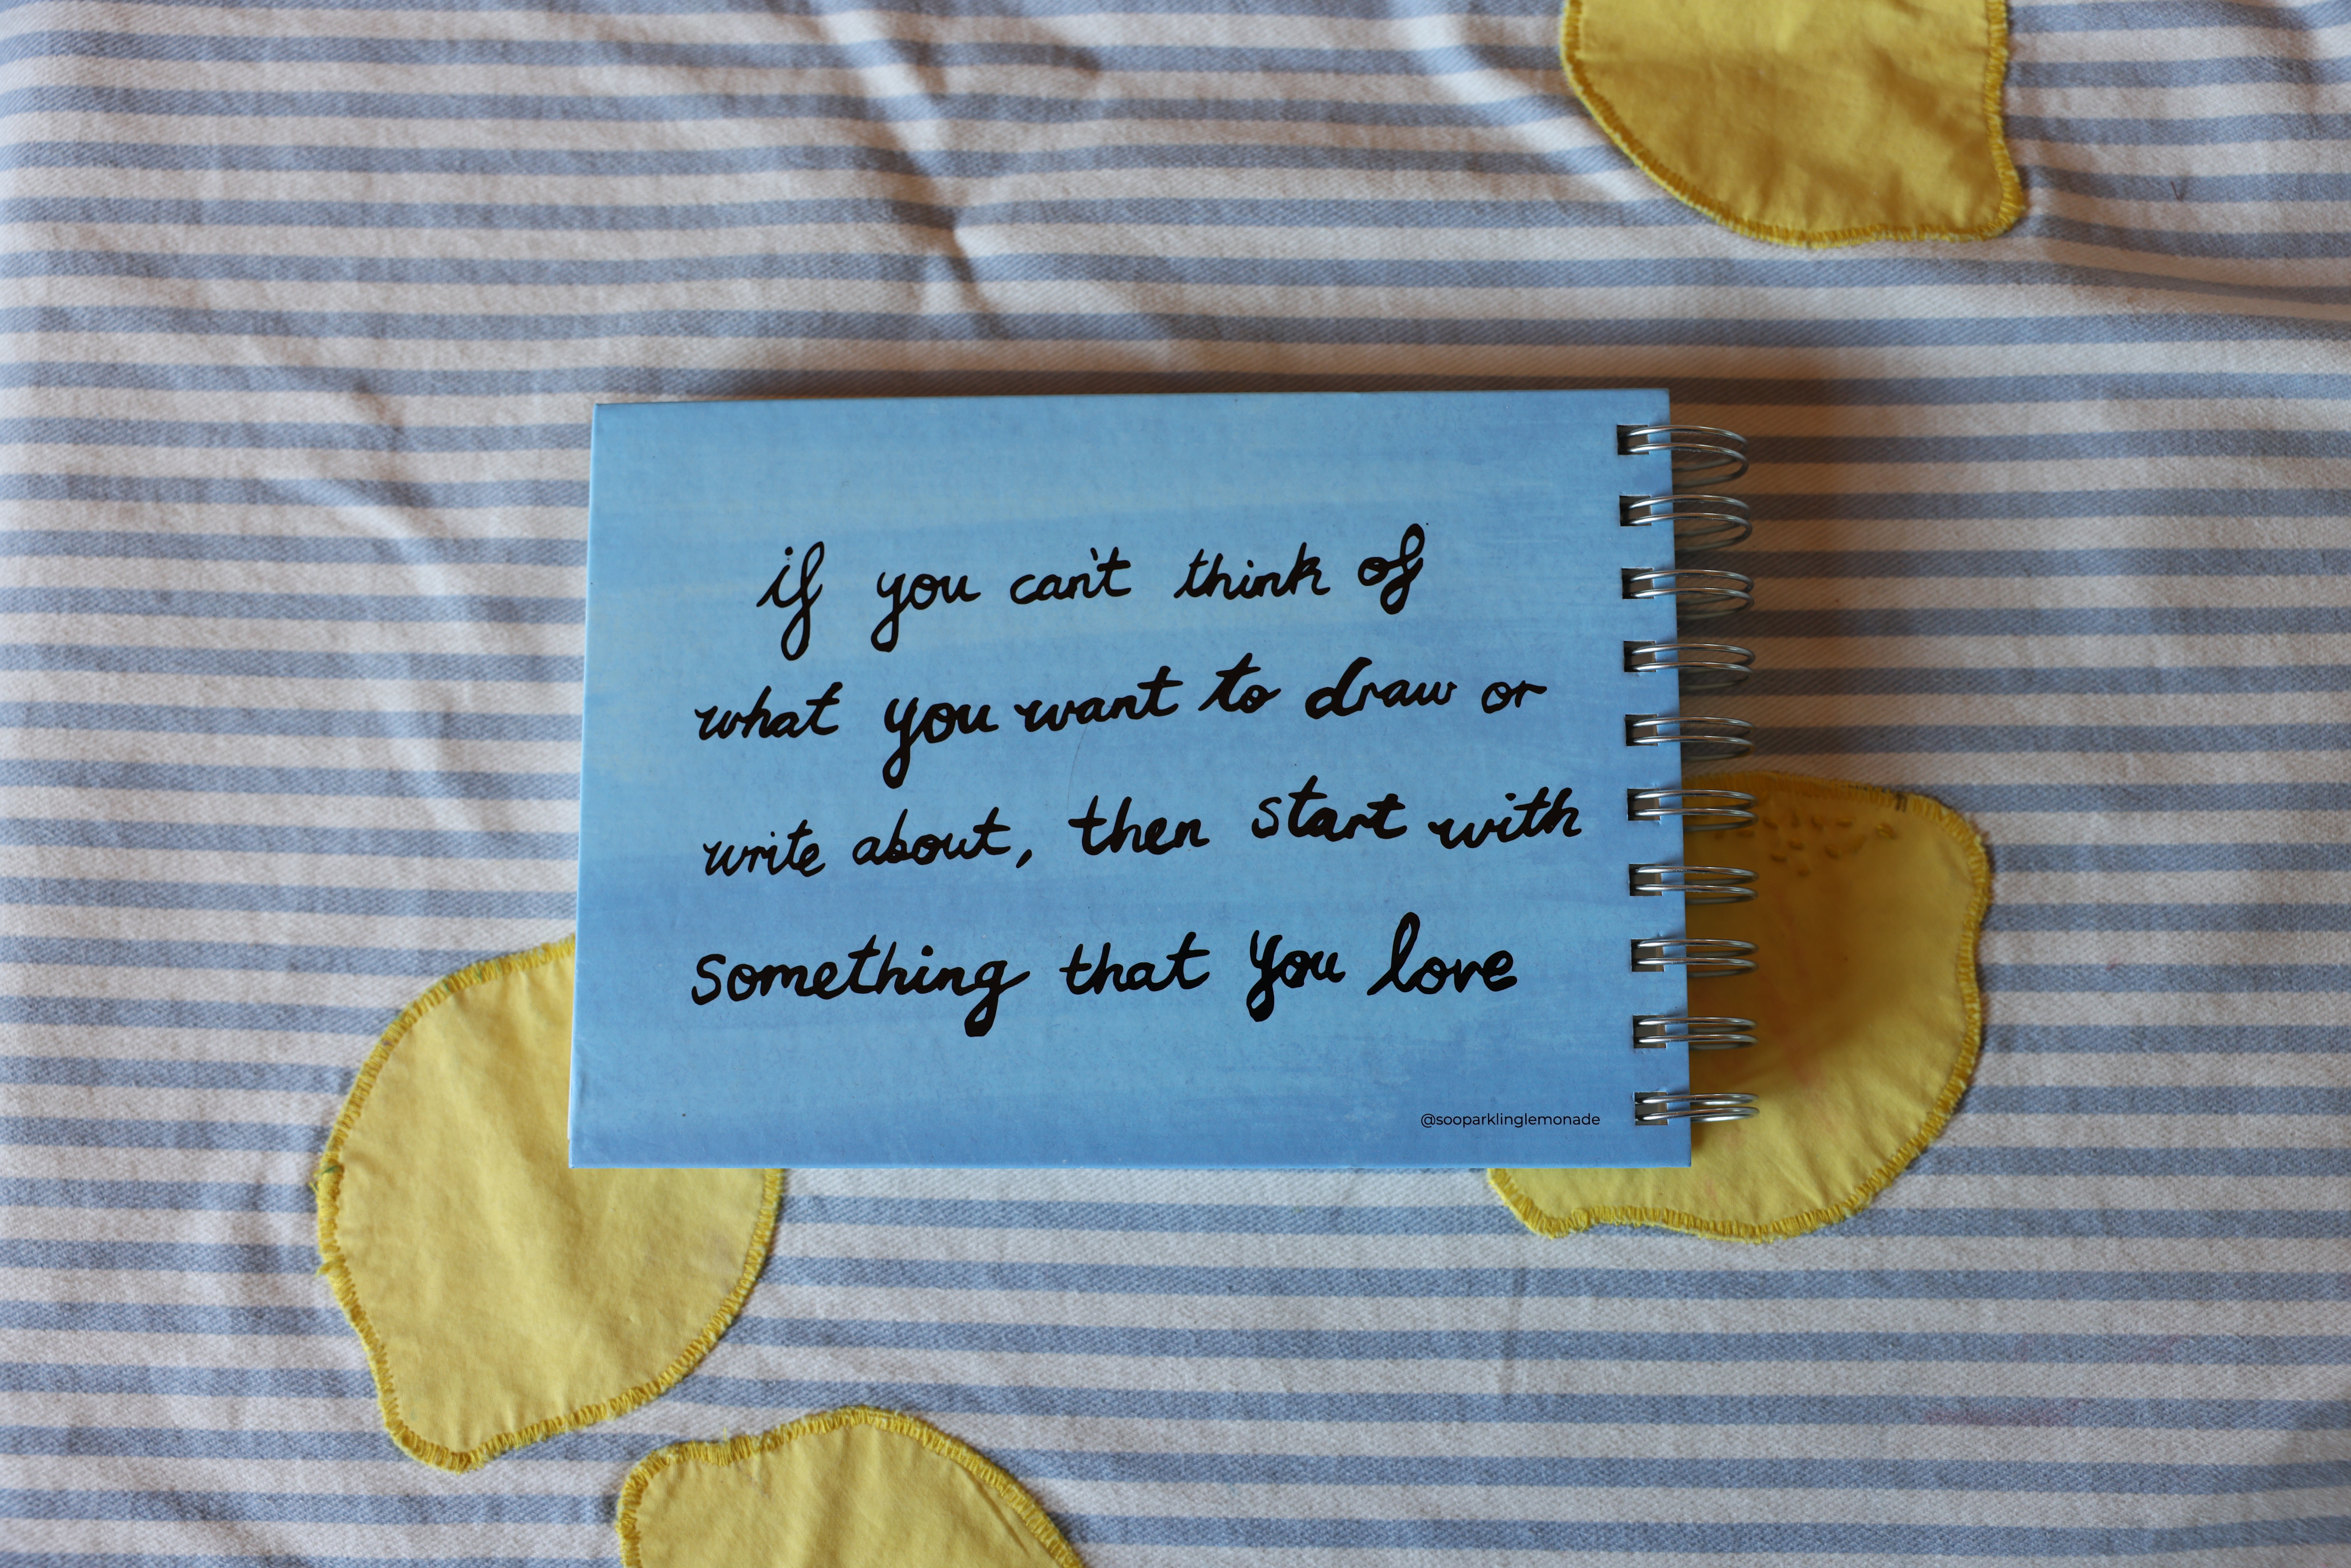 if you can't think of
what you want to draw or
write about, then start with
something that you love
@sooparklinglemonade